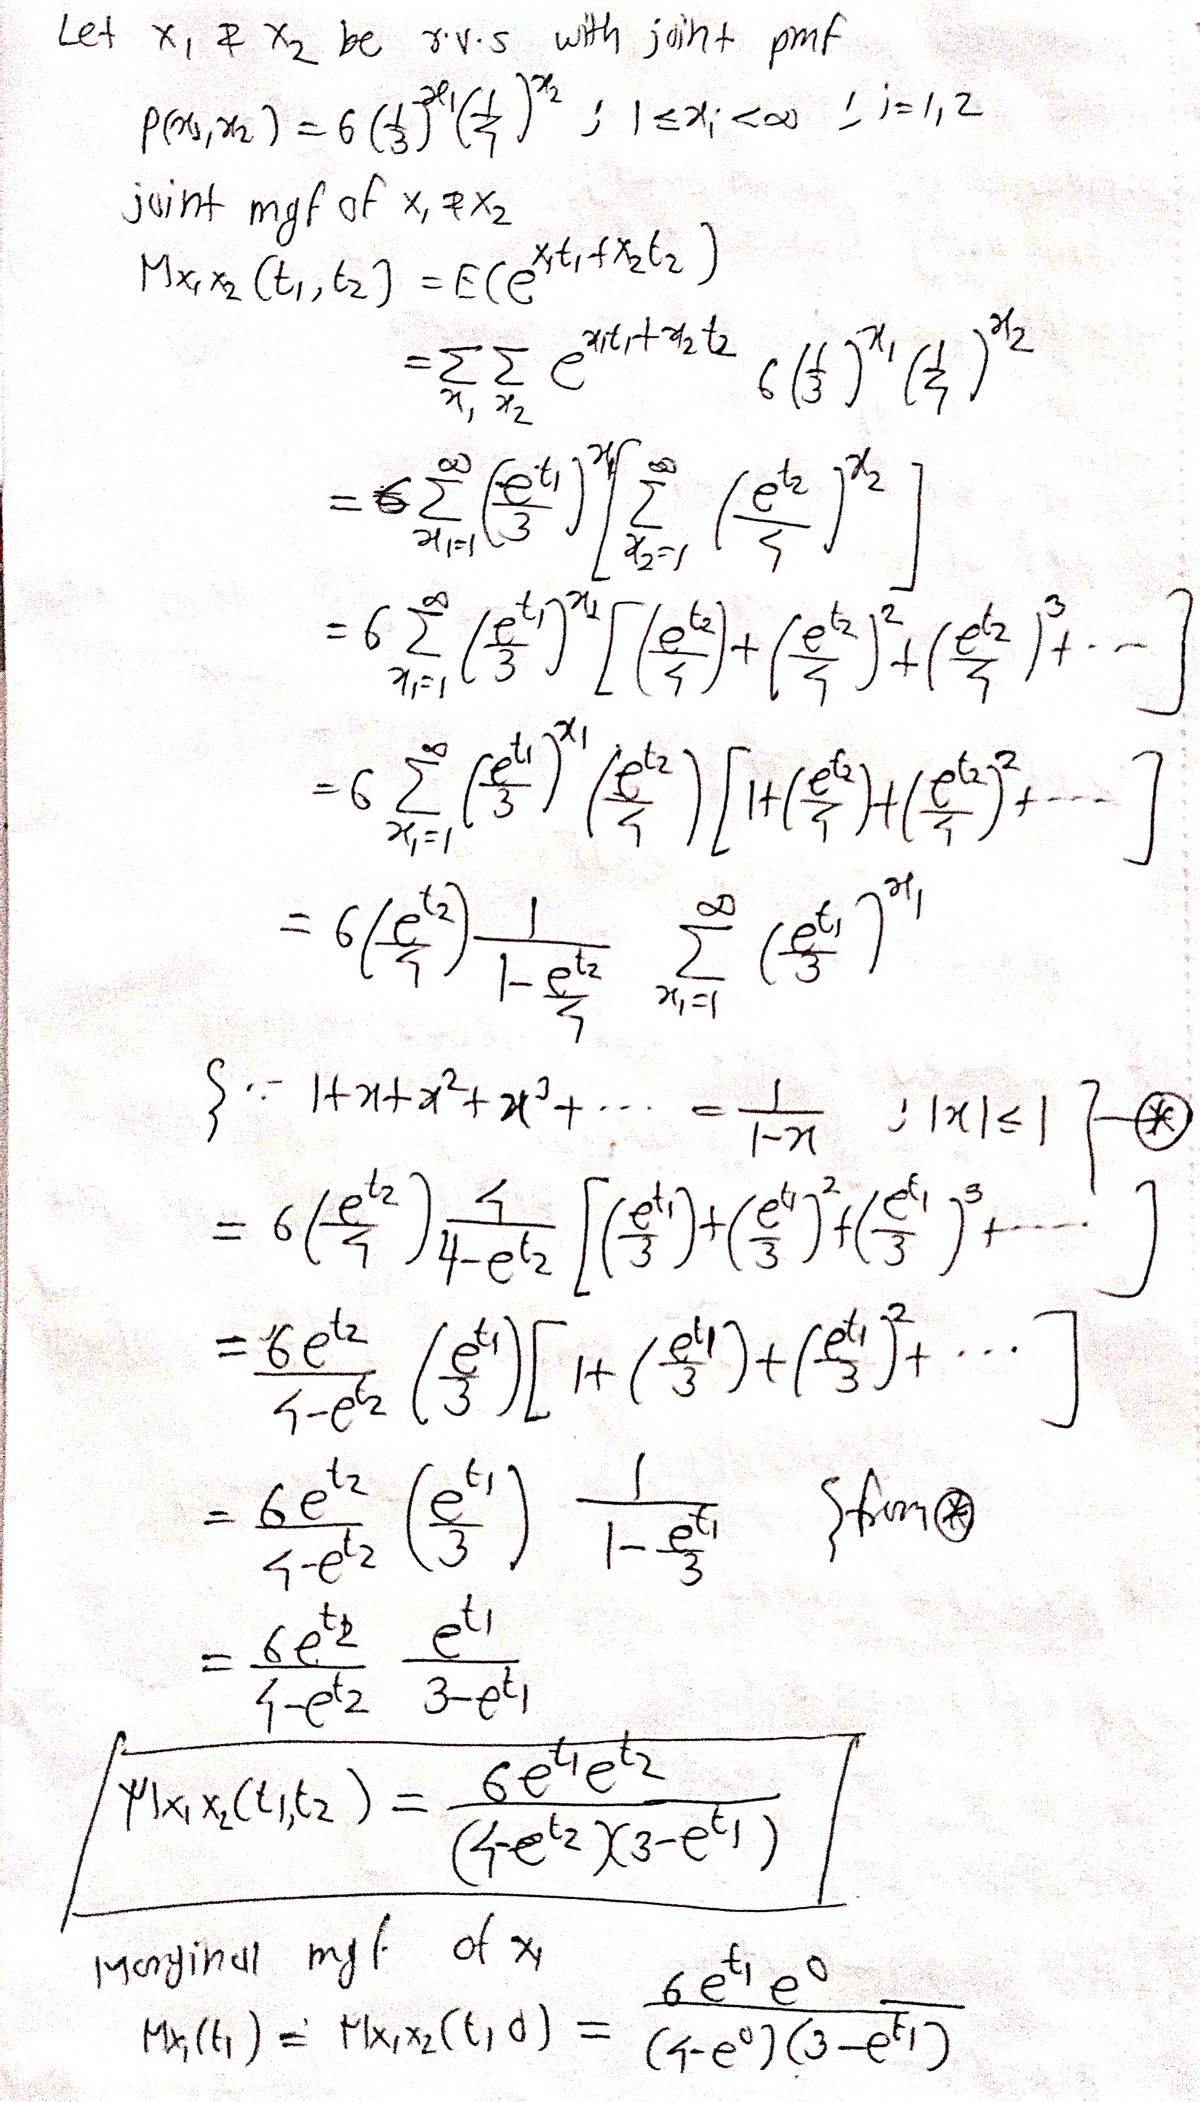 Let X₁ & X₂ be r.v.s with joint pmf
P(x₁, x₂) = 6 (1/3)^x₁ (1/4)^x₂ ; 1 ≤ xᵢ < ∞ ; i = 1, 2
joint mgf of X₁ & X₂
M_X₁X₂ (t₁, t₂) = E(e^(X₁t₁+X₂t₂))
= Σ_x₁ Σ_x₂ e^(x₁t₁+x₂t₂) 6 (1/3)^x₁ (1/4)^x₂
= 6 Σ_(x₁=1)^∞ (e^t₁/3)^x₁ [ Σ_(x₂=1)^∞ (e^t₂/4)^x₂ ]
= 6 Σ_(x₁=1)^∞ (e^t₁/3)^x₁ [ (e^t₂/4) + (e^t₂/4)² + (e^t₂/4)³ + ... ]
= 6 Σ_(x₁=1)^∞ (e^t₁/3)^x₁ (e^t₂/4) [ 1 + (e^t₂/4) + (e^t₂/4)² + .... ]
= 6 (e^t₂/4) 1/(1 - e^t₂/4) Σ_(x₁=1)^∞ (e^t₁/3)^x₁
{ ∵ 1 + x + x² + x³ + ... = 1/(1-x) ; |x| ≤ 1 } - ⊛
= 6 (e^t₂/4) 4/(4-e^t₂) [ (e^t₁/3) + (e^t₁/3)² + (e^t₁/3)³ + ..... ]
= 6e^t₂/(4-e^t₂) (e^t₁/3) [ 1 + (e^t₁/3) + (e^t₁/3)² + ... ]
= 6e^t₂/(4-e^t₂) (e^t₁/3) 1/(1 - e^t₁/3) } from ⊛
= 6e^t₂/(4-e^t₂) e^t₁/(3-e^t₁)
M_X₁X₂(t₁,t₂) = 6e^t₁e^t₂/((4-e^t₂)(3-e^t₁))
Marginal mgf of X₁
M_X₁(t₁) = M_X₁X₂(t₁ 0) = 6e^t₁ e⁰/((4-e⁰)(3-e^t₁))